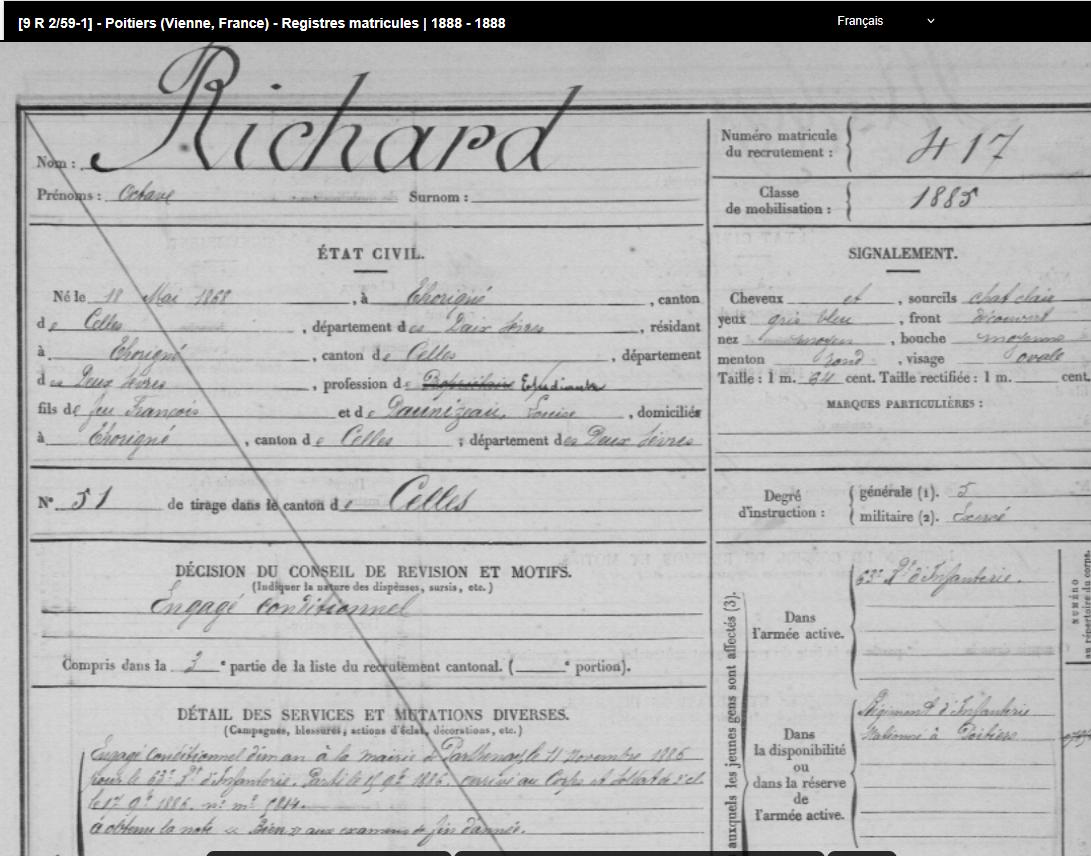 [9 R 2/59-1] - Poitiers (Vienne, France) - Registres matricules | 1888 - 1888
Français
Richard
Nom :
Prénoms : Octave Surnom :
Numéro matricule du recrutement : 417
Classe de mobilisation : 1885
ÉTAT CIVIL.
Né le 18 Mai 1868, à Thorigné, canton
de Celles, département des Deux Sèvres, résidant
à Thorigné, canton de Celles, département
des Deux Sèvres, profession d Etudiant
fils de feu François et de Daunizeau, Louise, domiciliés
à Thorigné, canton de Celles, département des Deux Sèvres
SIGNALEMENT.
Cheveux et, sourcils chat clair
yeux gris bleu, front découvert
nez moyen, bouche moyenne
menton rond, visage ovale
Taille : 1 m. 64 cent. Taille rectifiée : 1 m. cent.
MARQUES PARTICULIÈRES :
N° 51 de tirage dans le canton de Celles
Degré d'instruction : générale (1). 5
militaire (2). Exercé
DÉCISION DU CONSEIL DE REVISION ET MOTIFS.
(Indiquer la nature des dispenses, sursis, etc.)
Engagé conditionnel
Compris dans la 3e partie de la liste du recrutement cantonal. ( e portion).
DÉTAIL DES SERVICES ET MUTATIONS DIVERSES.
(Campagnes, blessures, actions d'éclat, décorations, etc.)
Engagé conditionnel d'un an à la mairie de Parthenay, le 11 Novembre 1886
pour le 63e Rt d'Infanterie. Parti le 9bre 1886, arrivé au Corps et soldat de 2e cl
le 17 9bre 1886. n° ml
a obtenu la note « Bien » aux examens de fin d'année.
auxquels les jeunes gens sont affectés (3).
Dans l'armée active.
63e Rt d'Infanterie.
Dans la disponibilité ou dans la réserve de l'armée active.
Régiment d'Infanterie
stationné à Poitiers
NUMÉRO
au répertoire du corps.